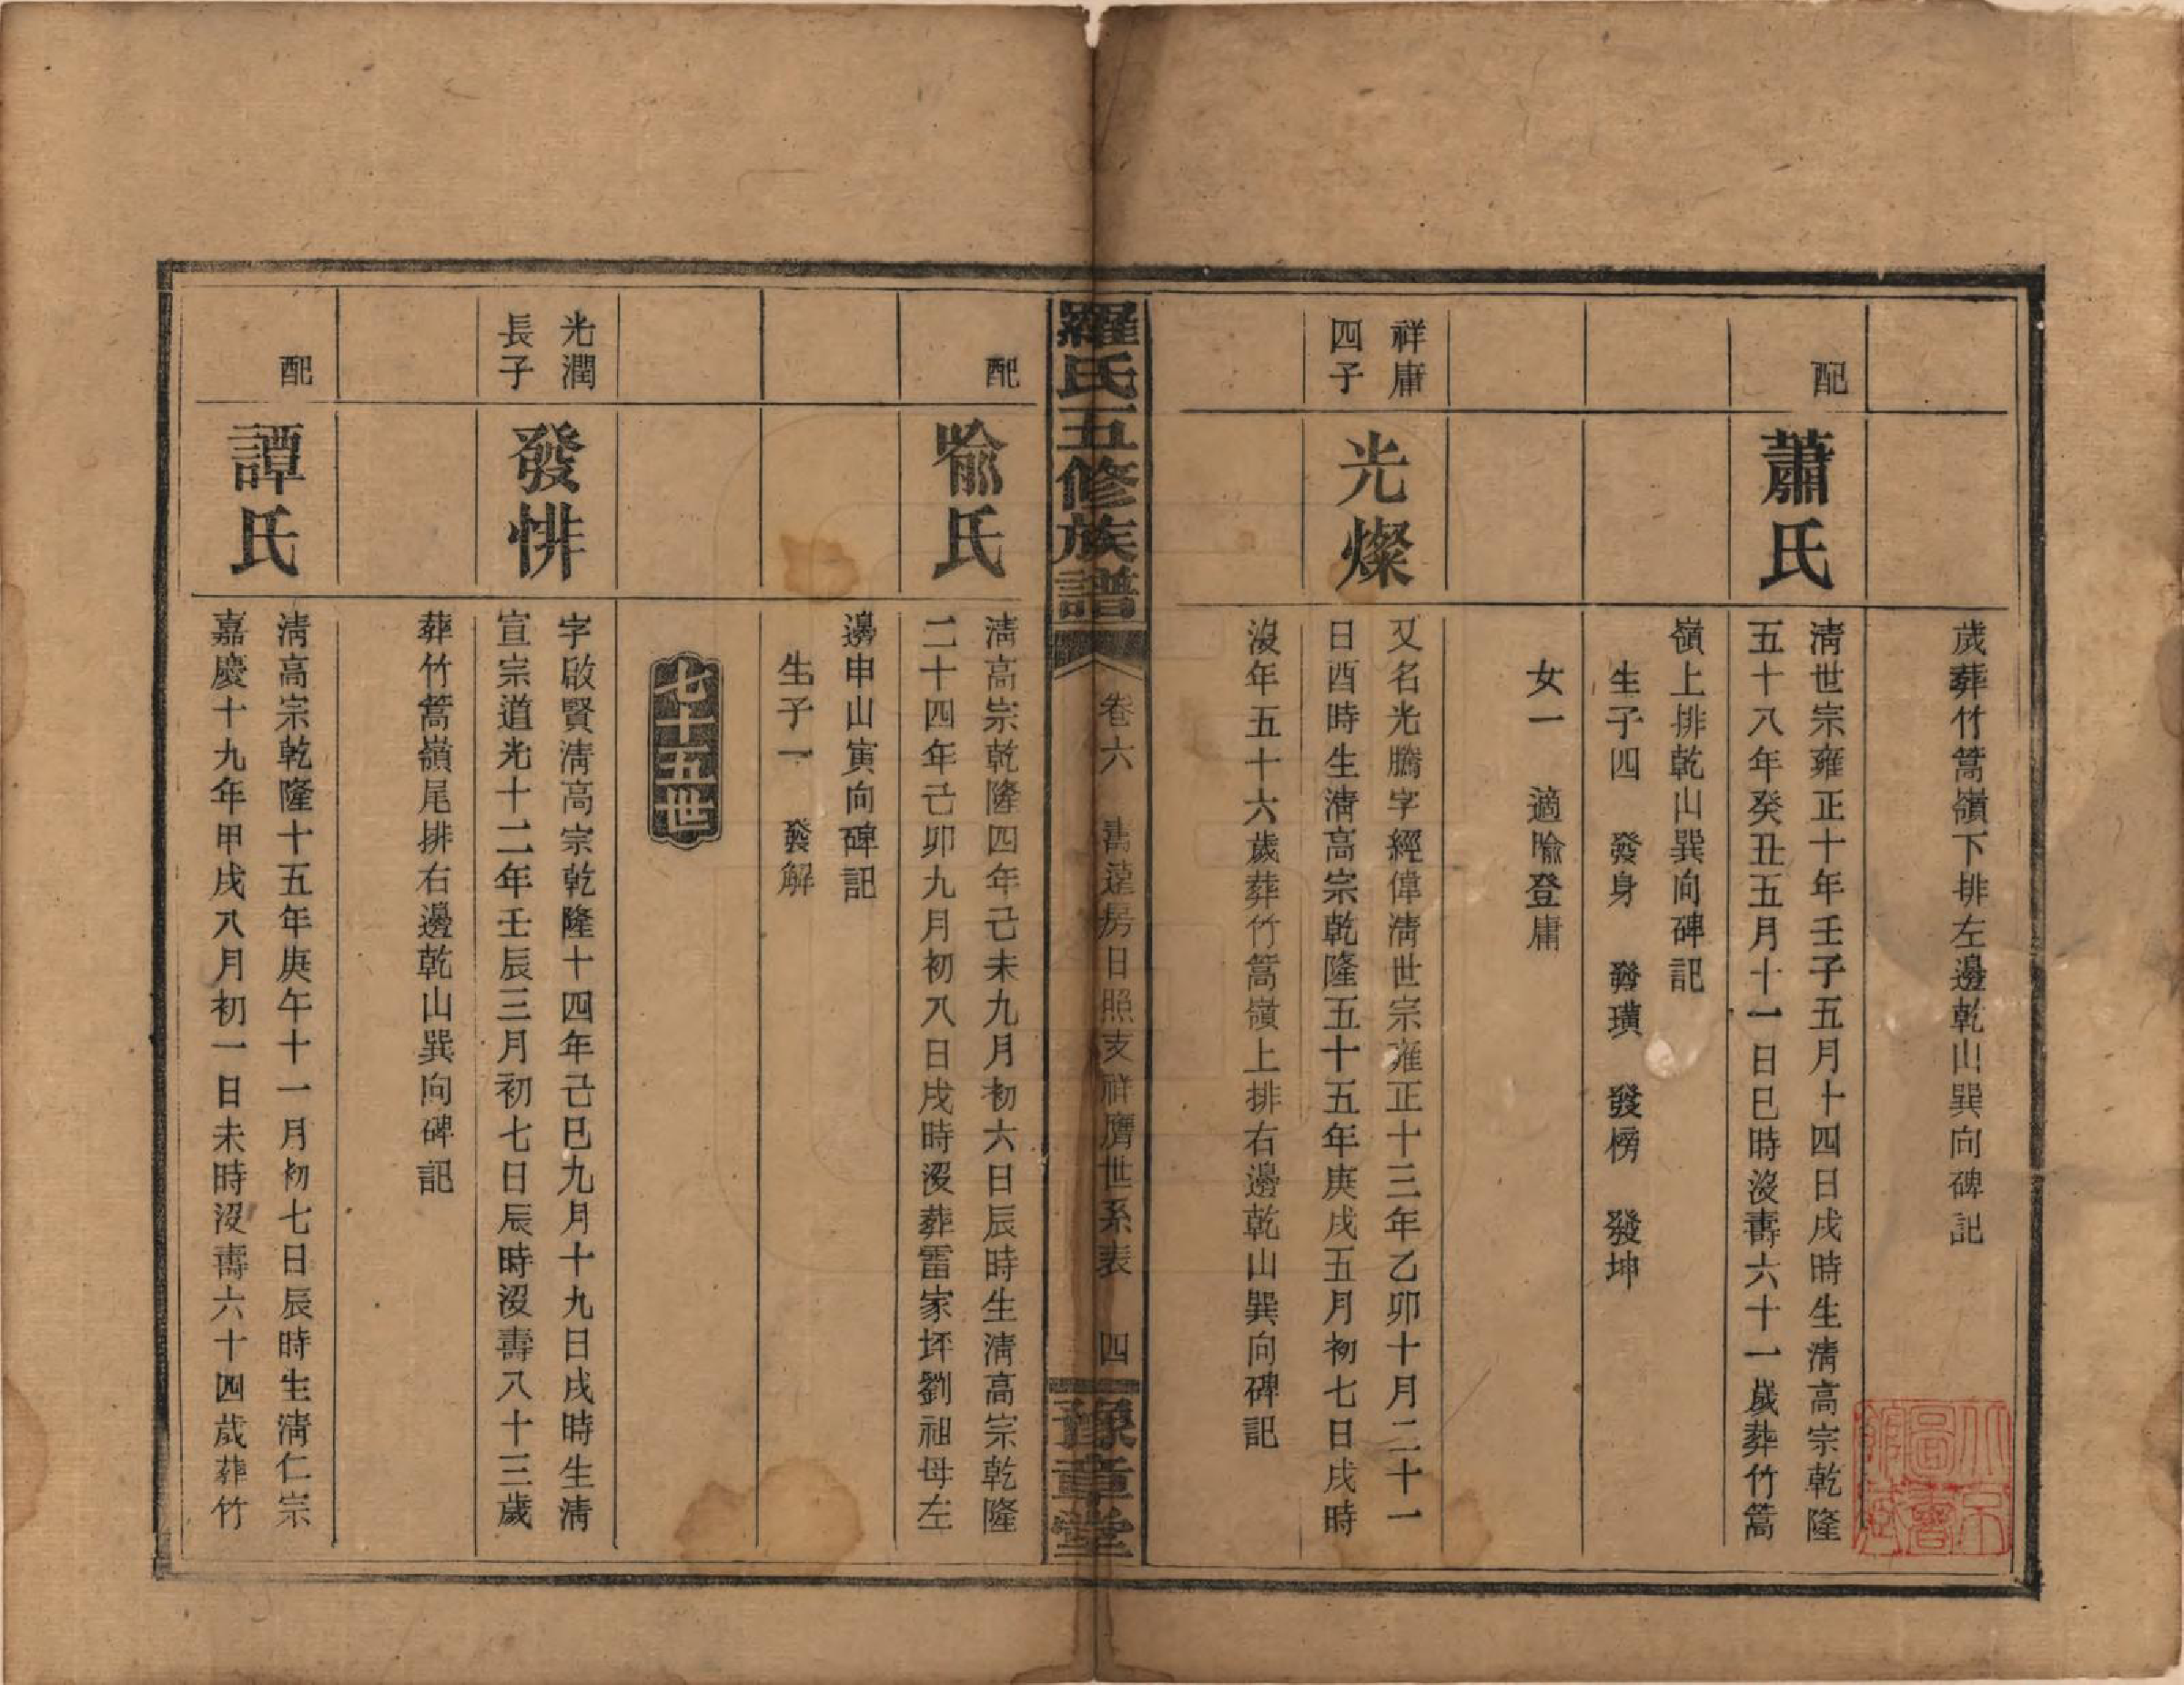 歲葬竹篙嶺下排左邊乾山巽向碑記
配
蕭氏
清世宗雍正十年壬子五月十四日戌時生清高宗乾隆
五十八年癸丑五月十一日巳時沒壽六十一歲葬竹篙
嶺上排乾山巽向碑記
生子四 發身 發璜 發榜 發坤
女一 適喻登庸
祥庸
四子
光燦
又名光騰字經偉清世宗雍正十三年乙卯十月二十一
日酉時生清高宗乾隆五十五年庚戌五月初七日戌時
沒年五十六歲葬竹篙嶺上排右邊乾山巽向碑記
羅氏五修族譜
卷六 壽達房日照支祥膺世系表 四
豫章堂
配
喻氏
清高宗乾隆四年己未九月初六日辰時生清高宗乾隆
二十四年己卯九月初八日戌時沒葬雷家坪劉祖母左
邊申山寅向碑記
生子一 發解
七十五世
光潤
長子
發悱
字啟賢清高宗乾隆十四年己巳九月十九日戌時生清
宣宗道光十二年壬辰三月初七日辰時沒壽八十三歲
葬竹篙嶺尾排右邊乾山巽向碑記
配
譚氏
清高宗乾隆十五年庚午十一月初七日辰時生清仁宗
嘉慶十九年甲戌八月初一日未時沒壽六十四歲葬竹
北京
圖書
館藏